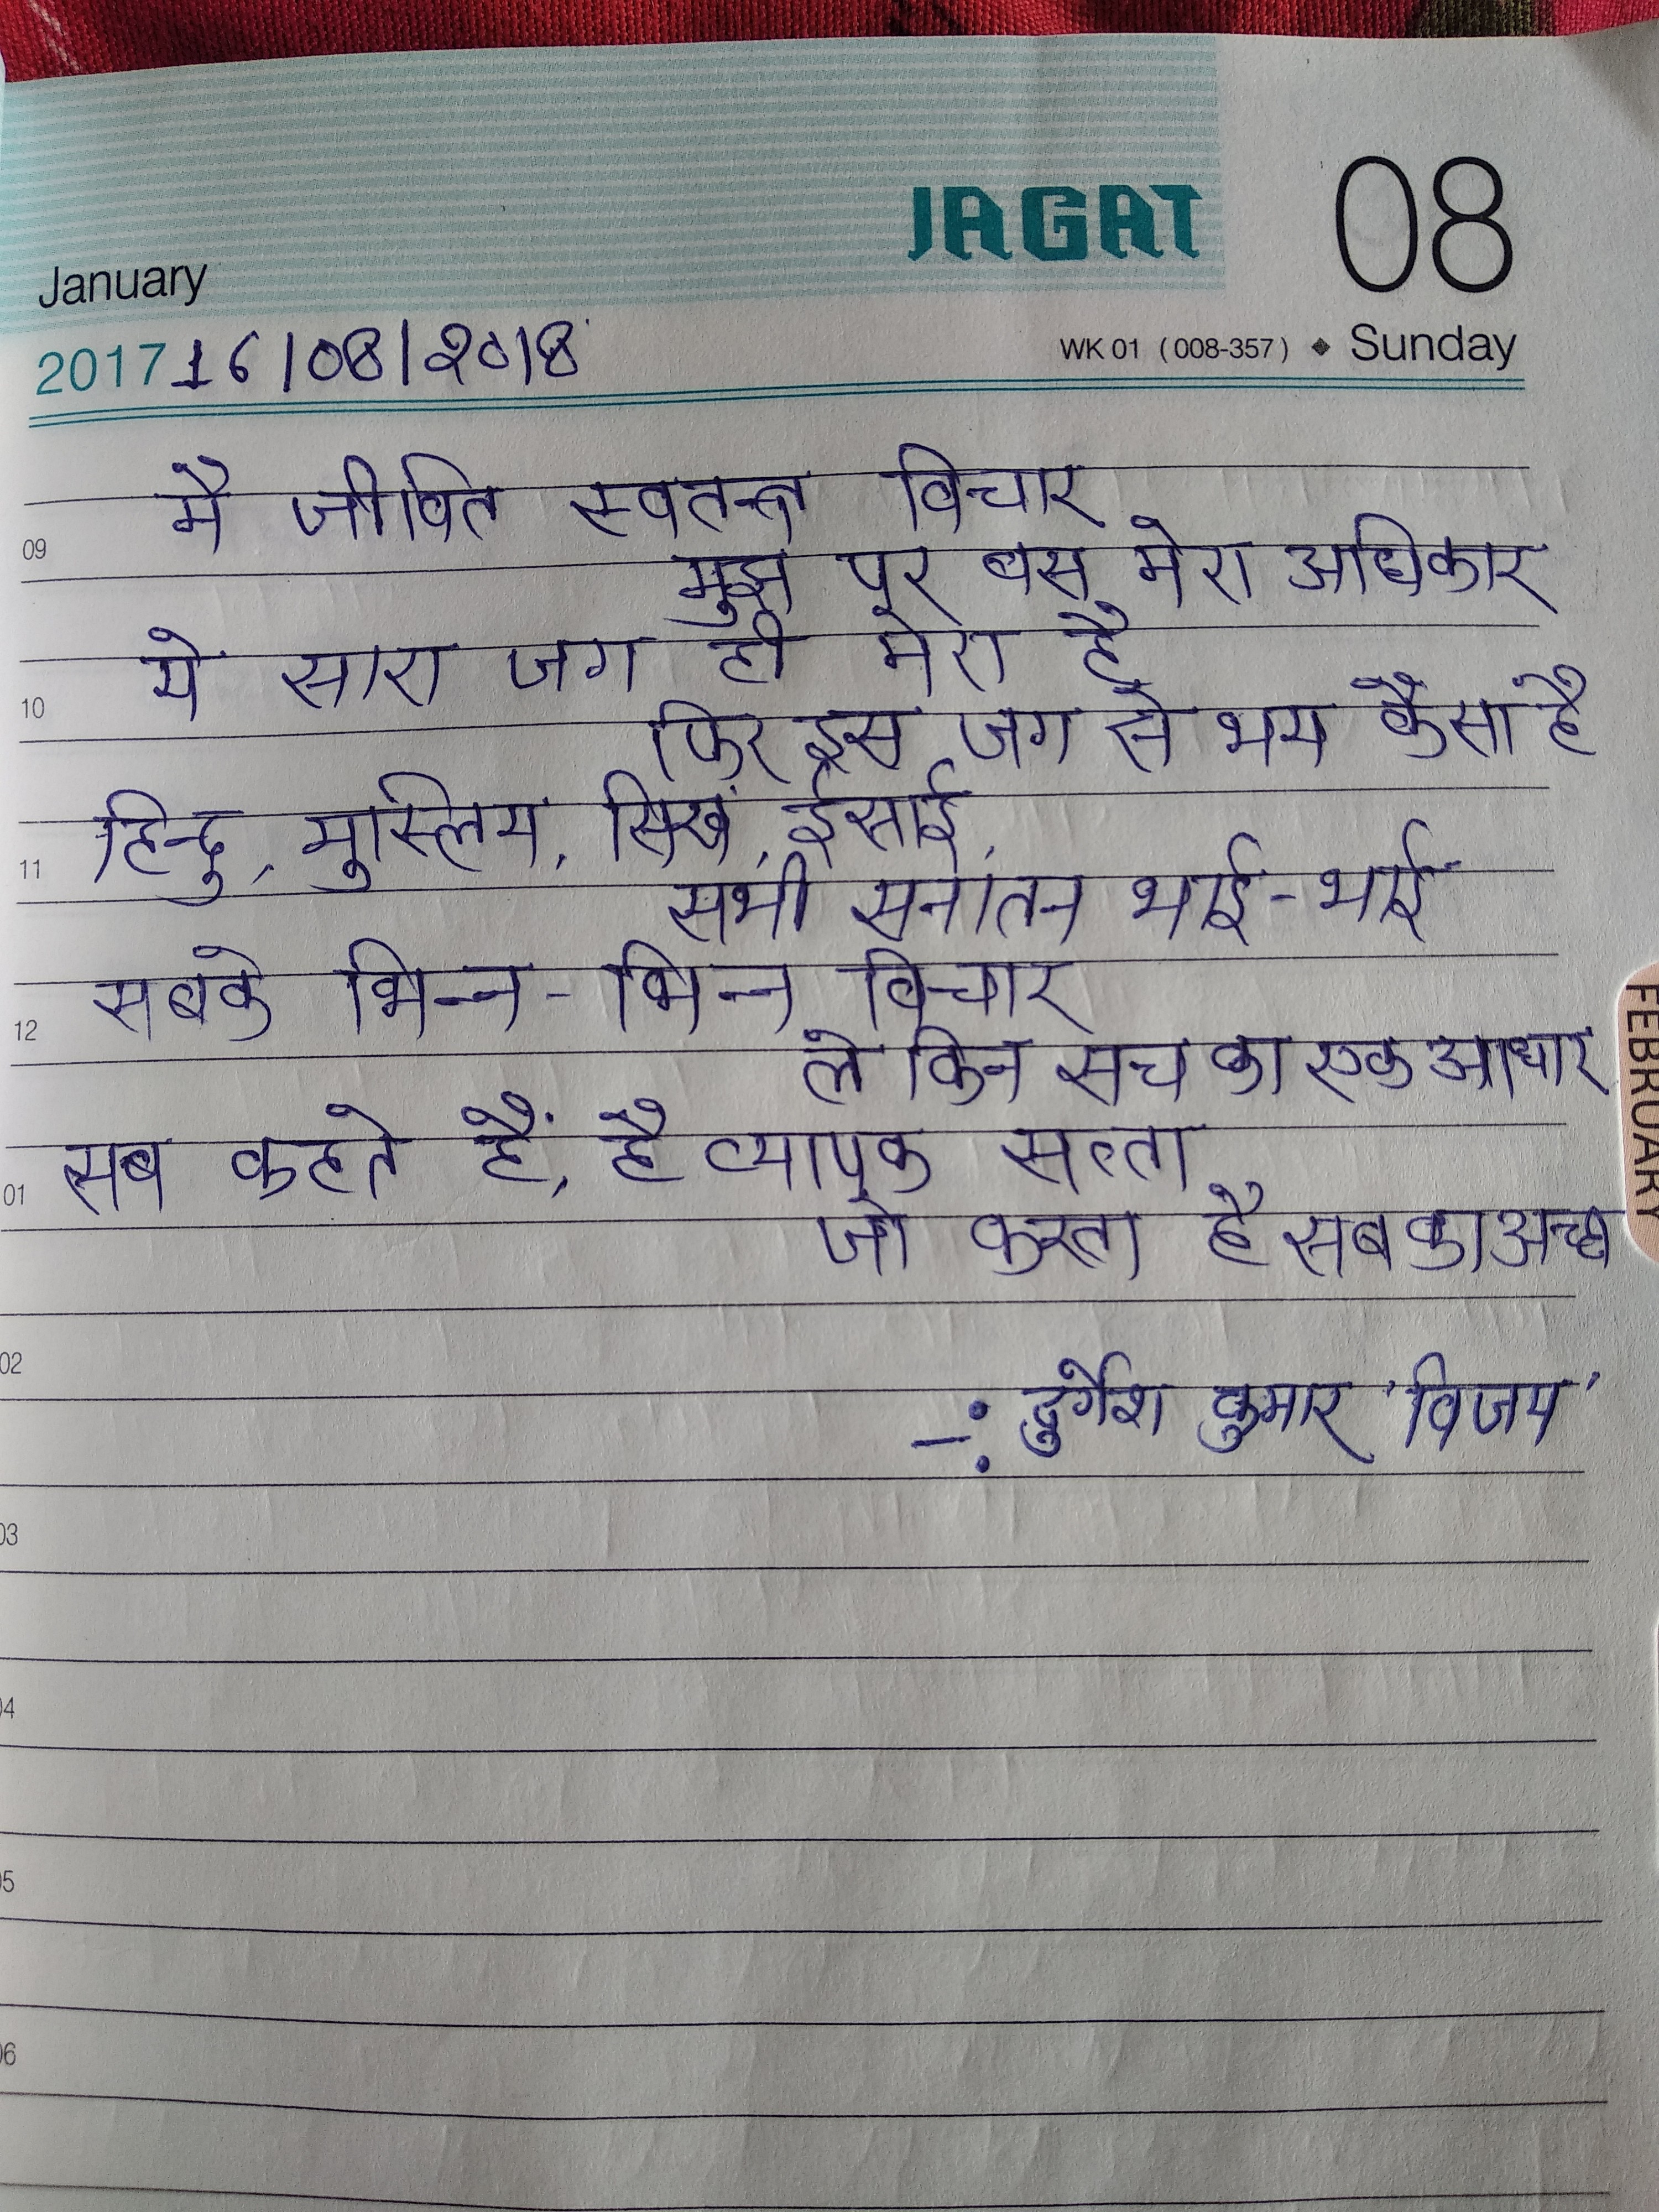 JAGAT
08
January
2017 16/08/2018
WK 01 (008-357) ◆ Sunday
मै जीवित स्वतन्त्र विचार
09
मुझ पर बस मेरा अधिकार
ये सारा जग ही मेरा है
10
फिर इस जग से भय कैसा है
हिन्दु, मुस्लिम, सिख, ईसाई,
11
सभी सनातन भाई-भाई
सबके भिन्न-भिन्न विचार
12
लेकिन सच का एक आधार
FEBRUARY
सब कहते हैं, है व्यापक सत्ता
01
जो करता है सब का अच्छा
02
-: दुर्गेश कुमार 'विजय'
03
04
05
06